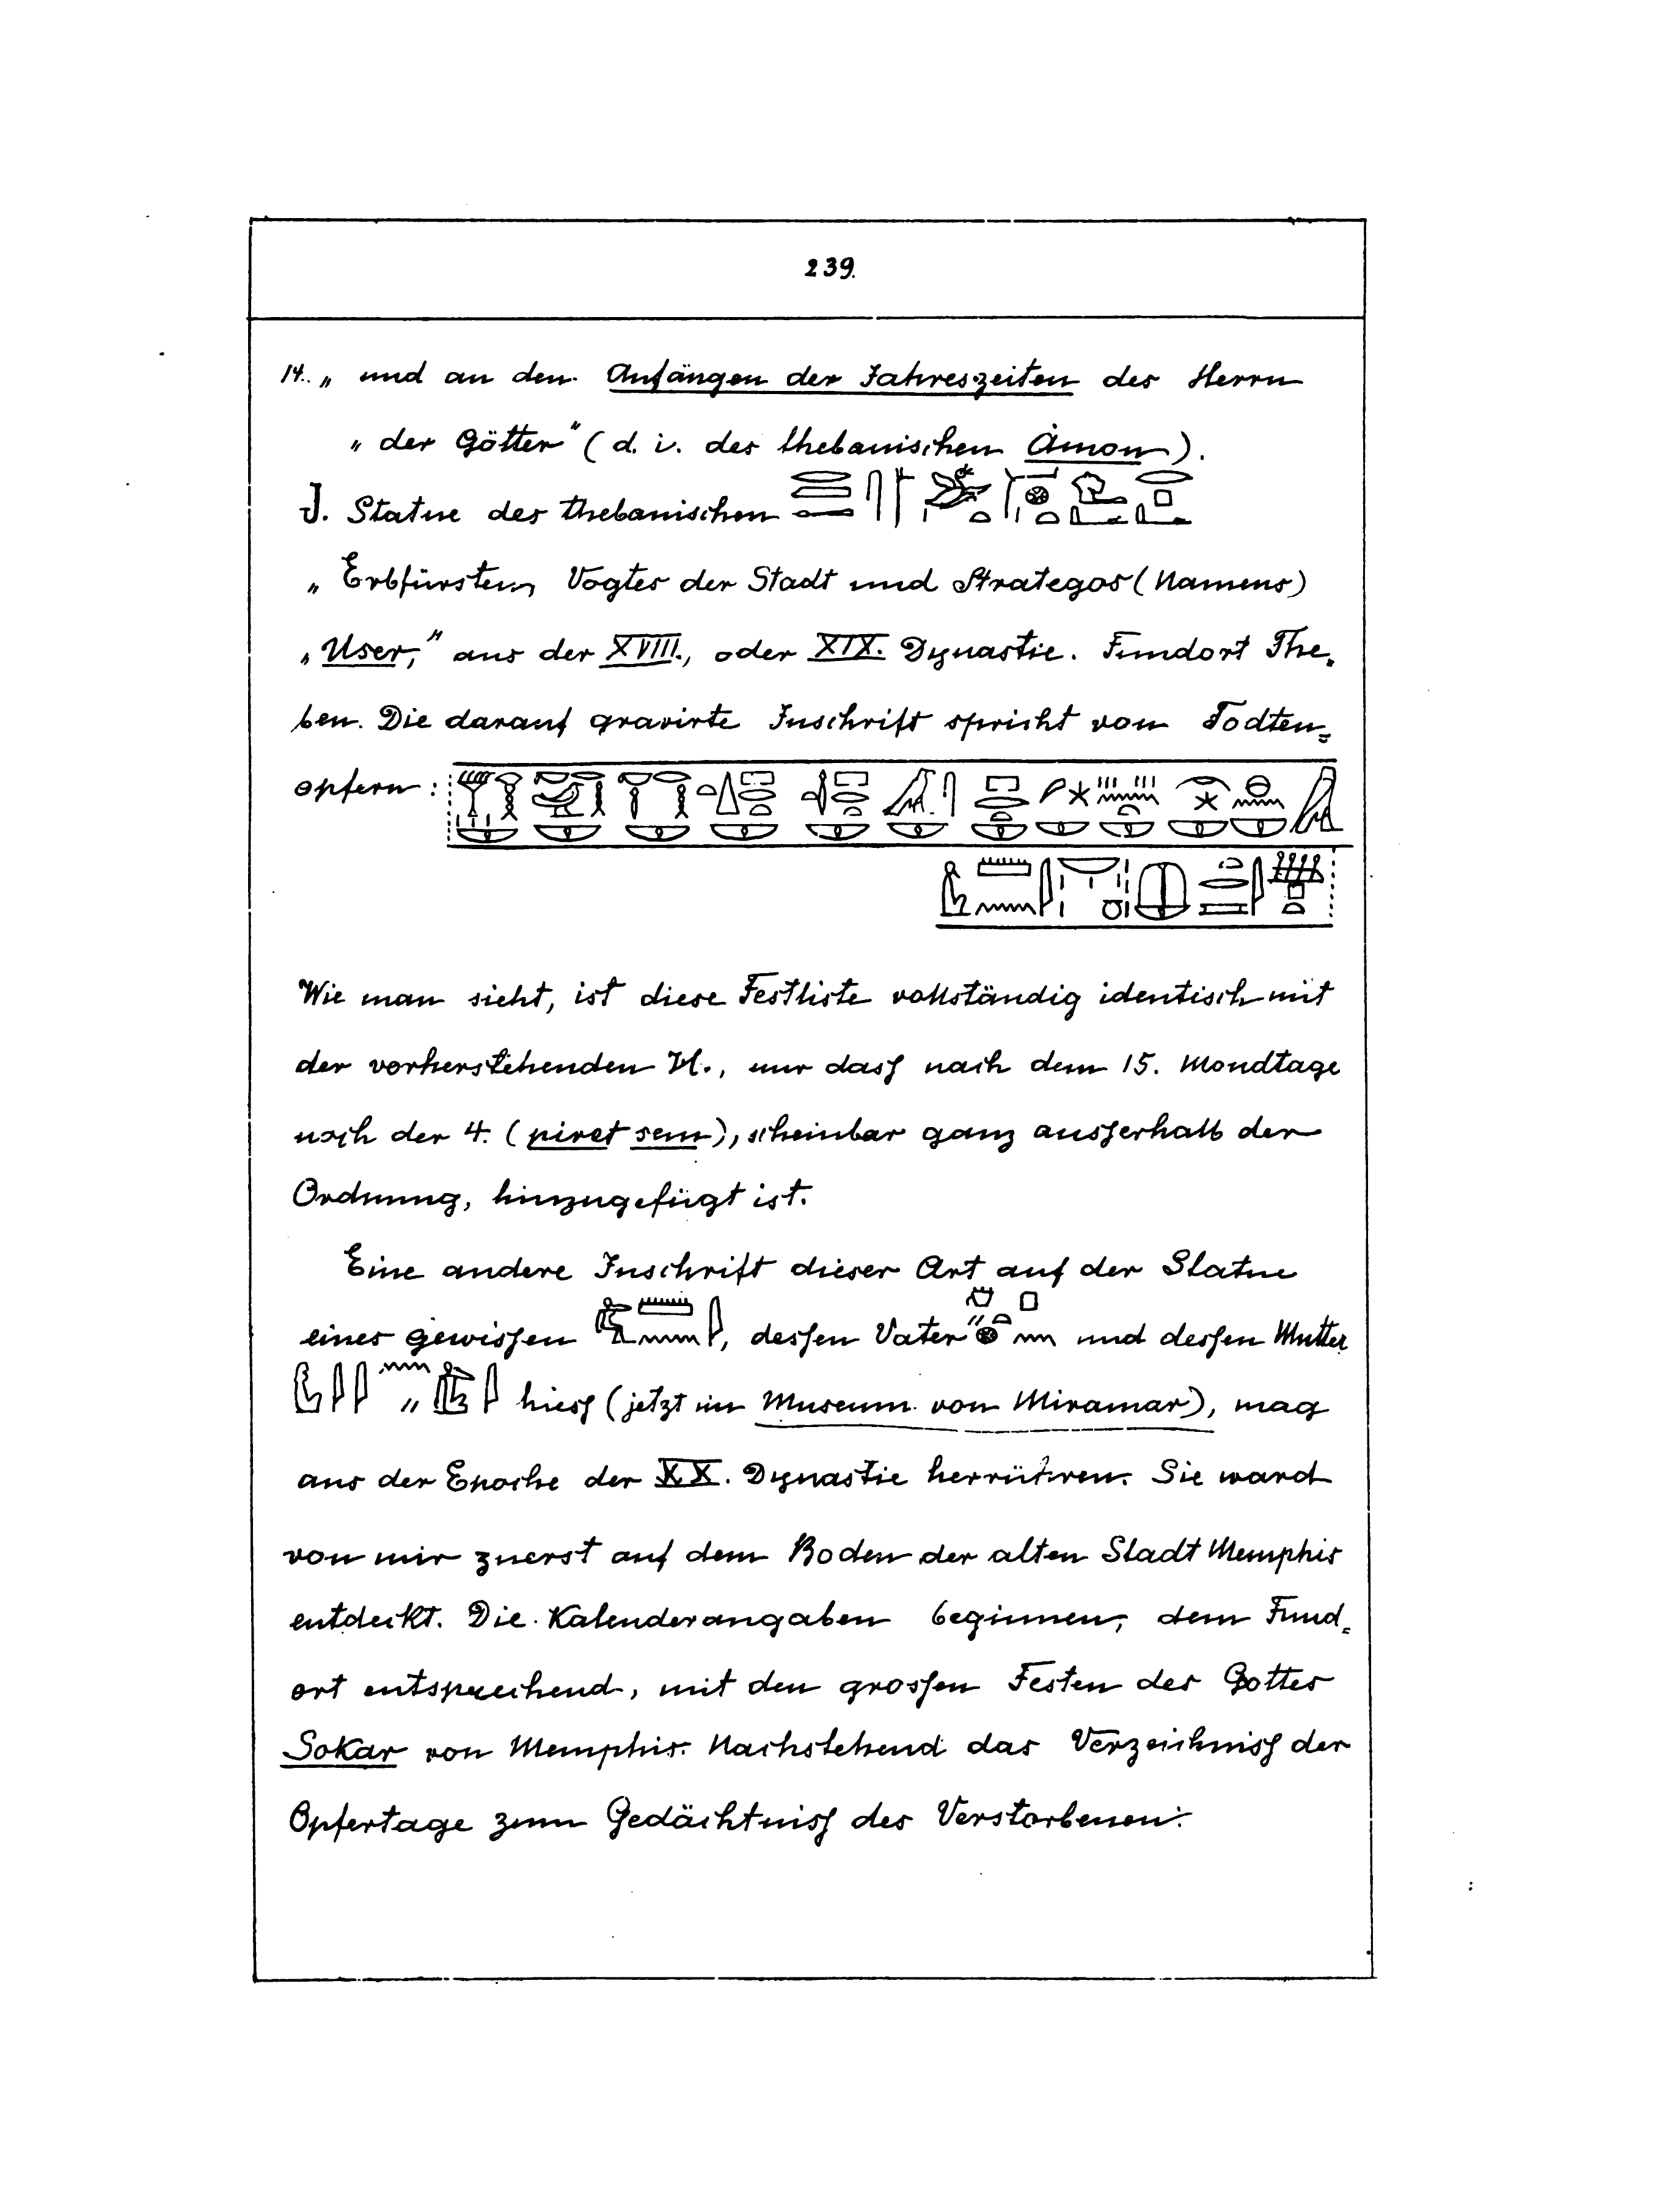 239.
14. „ und an den Anfängen der Jahreszeiten des Herrn
„ der Götter“ (d. i. des thebanischen Åmon).
J. Statue des thebanischen
„ Erbfürsten, Vogtes der Stadt und Strategos (Namens)
„ User,“ aus der XVIII., oder XIX. Dynastie. Fundort The-
ben. Die darauf gravirte Inschrift spricht von Todten-
opfern :
Wie man sieht, ist diese Festliste vollständig identisch mit
der vorherstehenden H., nur dass nach dem 15. Mondtage
noch der 4. (piret sem), scheinbar ganz ausserhalb der
Ordnung, hinzugefügt ist.
Eine andere Inschrift dieser Art auf der Statue
eines gewissen , dessen Vater und dessen Mutter
hiess (jetzt im Museum von Miramar), mag
aus der Epoche der XX. Dynastie herrühren. Sie ward
von mir zuerst auf dem Boden der alten Stadt Memphis
entdeckt. Die Kalenderangaben beginnen, dem Fund-
ort entsprechend, mit den grossen Festen des Gottes
Sokar von Memphis. Nachstehend das Verzeichniss der
Opfertage zum Gedächtniss des Verstorbenen: